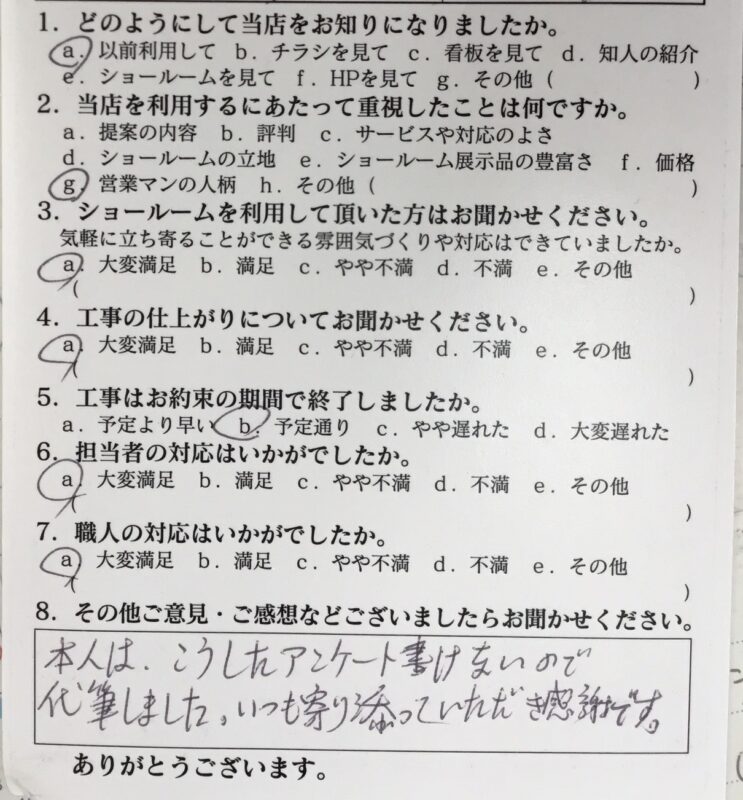 1. どのようにして当店をお知りになりましたか。
a. 以前利用して b. チラシを見て c. 看板を見て d. 知人の紹介
e. ショールームを見て f. HPを見て g. その他 ( )
2. 当店を利用するにあたって重視したことは何ですか。
a. 提案の内容 b. 評判 c. サービスや対応のよさ
d. ショールームの立地 e. ショールーム展示品の豊富さ f. 価格
g. 営業マンの人柄 h. その他 ( )
3. ショールームを利用して頂いた方はお聞かせください。
気軽に立ち寄ることができる雰囲気づくりや対応はできていましたか。
a. 大変満足 b. 満足 c. やや不満 d. 不満 e. その他
( )
4. 工事の仕上がりについてお聞かせください。
a. 大変満足 b. 満足 c. やや不満 d. 不満 e. その他
( )
5. 工事はお約束の期間で終了しましたか。
a. 予定より早い b. 予定通り c. やや遅れた d. 大変遅れた
6. 担当者の対応はいかがでしたか。
a. 大変満足 b. 満足 c. やや不満 d. 不満 e. その他
( )
7. 職人の対応はいかがでしたか。
a. 大変満足 b. 満足 c. やや不満 d. 不満 e. その他
( )
8. その他ご意見・ご感想などございましたらお聞かせください。
本人は、こうしたアンケート書けないので
代筆しました。いつも寄り添っていただき感謝です。
ありがとうございます。